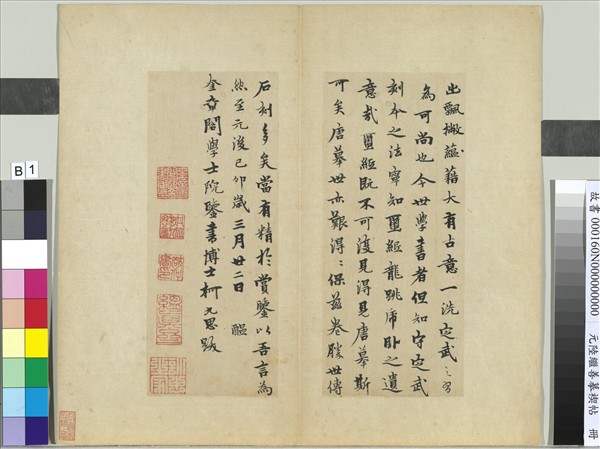 出飄撇蘊藉大有古意一洗定武之習
為可尚也今世學書者但知守定武
刻本之法寧知璽紙龍跳虎卧之遺
意哉璽紙既不可復見得見唐摹斯
可矣唐摹世亦艱得〻保茲卷勝世傳
石刻多矣當有精於賞鑒以吾言為
然至元後己卯歲三月廿二日
奎章閣學士院鑒書博士柯九思跋
B 1
故書000160N000000000 元陸繼善摹禊帖 冊